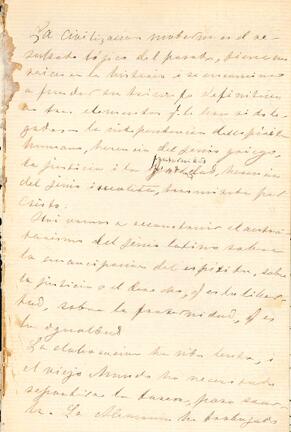 La civilizacion moderna es el re-
sultado lójico del pasado, tiene sus
raices en la historia i se encamina
a fundar su triunfo definitivo
en tres elementos q le han sido le-
gados: la independencia del espíritu
humano, herencia del jénio griego,
la justicia i la
del jénio israelita, trasmitida por
Cristo.
Aqui vamos a reconstruir el
del jénio latino sobre
la emancipacion del espíritu, sobre
la justicia o el derecho, q es la liber-
tad, sobre la fraternidad, q es
la igualdad.
La elaboracion ha sido lenta, i
el viejo Mundo ha necesitado
la
La Alemania ha trabajado